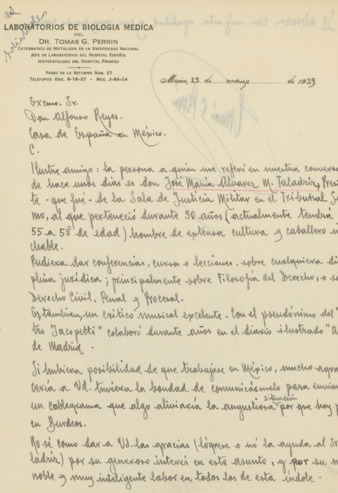 LABORATORIOS DE BIOLOGIA MEDICA
DEL
DR. TOMAS G. PERRIN
CATEDRATICO DE HISTOLOGIA EN LA UNIVERSIDAD NACIONAL
JEFE DE LABORATORIOS DEL HOSPITAL ESPAÑOL
HISTOPATOLOGO DEL HOSPITAL FRANCES
PASEO DE LA REFORMA NUM. 27
TELEFONOS: ERIC. 6-18-27 - MEX. J-86-04
Mexico, 23 de marzo de 1939
Excmo. Sr.
Don Alfonso Reyes.
Casa de España en México.
C.
Ilustre amigo: la persona a quien me referí en nuestra convers
de hace unos dias es don José María Alvarez M. Taladriz, Presi
te - que fué - de la Sala de Justicia Militar en el Tribunal S
mo, al que perteneció durante 30 años (actualmente tendrá
55 a 58 de edad) hombre de extensa cultura y caballero in
chable.
Pudiera dar conferencias, cursos o lecciones, sobre cualquiera di
plina jurídica; principalmente sobre Filosofía del Derecho, o s
Derecho Civil, Penal y Procesal.
Es tambien, un crítico musical excelente. Con el pseudónimo de
tro Jacopetti" colaboró durante años en el diario ilustrado "A
de Madrid.
Si hubiera posibilidad de que trabajase en México, mucho agra
cería a Vd. tuviera la bondad de comunicármelo para enviar
un cablegrama que algo aliviaría la angustiosa situación por que hoy
en Burdeos.
No sé como dar a Vds. las gracias (lógrese o no la ayuda al Sr
ladriz) por su generoso interés en este asunto, y por su n
noble y muy inteligente labor en todos los de esta índole.